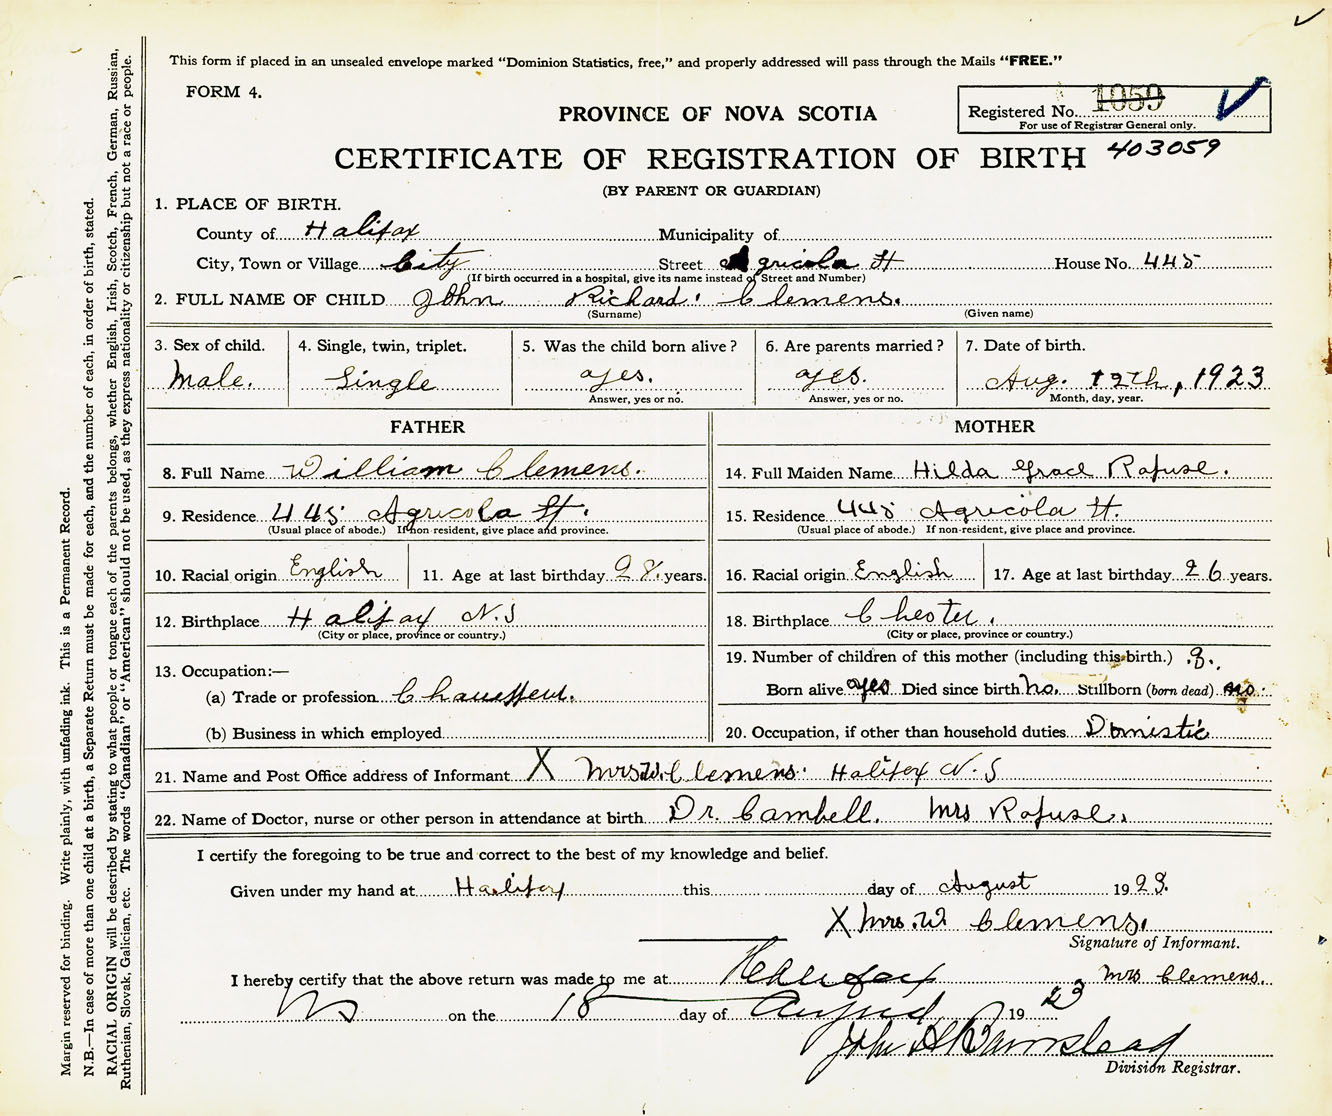 This form if placed in an unsealed envelope marked "Dominion Statistics, free," and properly addressed will pass through the Mails "FREE."
FORM 4.
PROVINCE OF NOVA SCOTIA
Registered No. 1059
For use of Registrar General only.
CERTIFICATE OF REGISTRATION OF BIRTH 403059
(BY PARENT OR GUARDIAN)
1. PLACE OF BIRTH.
County of Halifax Municipality of
City, Town or Village City Street Agricola St House No. 445
(If birth occurred in a hospital, give its name instead of Street and Number)
2. FULL NAME OF CHILD John Richard Clemens.
(Surname) (Given name)
3. Sex of child. 4. Single, twin, triplet. 5. Was the child born alive? 6. Are parents married? 7. Date of birth.
Male. Single yes. yes. Aug. 12th, 1923
Answer, yes or no. Answer, yes or no. Month, day, year.
FATHER MOTHER
8. Full Name William Clemens. 14. Full Maiden Name Hilda Grace Rafuse.
9. Residence 445 Agricola St. 15. Residence 445 Agricola St.
(Usual place of abode.) If non-resident, give place and province. (Usual place of abode.) If non-resident, give place and province.
10. Racial origin English 11. Age at last birthday 28. years. 16. Racial origin English 17. Age at last birthday 26 years.
12. Birthplace Halifax N.S 18. Birthplace Chester.
(City or place, province or country.) (City or place, province or country.)
13. Occupation:— 19. Number of children of this mother (including this birth.)
(a) Trade or profession Chauffeur. Born alive yes Died since birth no. Stillborn (born dead) no.
(b) Business in which employed 20. Occupation, if other than household duties Domistic
21. Name and Post Office address of Informant X Mrs W. Clemens. Halifax N.S
22. Name of Doctor, nurse or other person in attendance at birth Dr. Cambell. Mrs Rafuse.
I certify the foregoing to be true and correct to the best of my knowledge and belief.
Given under my hand at Halifax this day of August 1923.
X Mrs. W Clemens.
Signature of Informant.
I hereby certify that the above return was made to me at Halifax Mrs Clemens.
NS on the 18 day of August 1923
John A Barnstead
Division Registrar.
Margin reserved for binding. Write plainly, with unfading ink. This is a Permanent Record.
N.B.—In case of more than one child at a birth, a Separate Return must be made for each, and the number of each, in order of birth, stated.
RACIAL ORIGIN will be described by stating to what people or tongue each of the parents belongs, whether English, Irish, Scotch, French, German, Russian,
Ruthenian, Slovak, Galician, etc. The words "Canadian" or "American" should not be used, as they express nationality or citizenship but not a race or people.